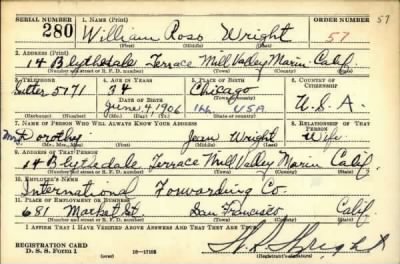 57
SERIAL NUMBER 1. NAME (Print) ORDER NUMBER
280 William Ross Wright 57
(First) (Middle) (Last)
2. ADDRESS (Print)
14 Blythedale Terrace Mill Valley Marin Calif.
(Number and street or R. F. D. number) (Town) (County) (State)
3. TELEPHONE 4. AGE IN YEARS 5. PLACE OF BIRTH 6. COUNTRY OF CITIZENSHIP
Sutter 5171 34 Chicago
DATE OF BIRTH (Town or county)
June 4, 1906 Ill USA U.S.A
(Exchange) (Number) (Mo.) (Day) (Yr.) (State or country)
7. NAME OF PERSON WHO WILL ALWAYS KNOW YOUR ADDRESS 8. RELATIONSHIP OF THAT PERSON
Mrs Dorothy Jean Wright Wife
(Mr., Mrs., Miss) (First) (Middle) (Last)
9. ADDRESS OF THAT PERSON
14 Blythedale Terrace Mill Valley Marin Calif.
(Number and street or R. F. D. number) (Town) (County) (State)
10. EMPLOYER'S NAME
International Forwarding Co.
11. PLACE OF EMPLOYMENT OR BUSINESS
681 Market St San Francisco Calif
(Number and street or R. F. D. number) (Town) (County) (State)
I AFFIRM THAT I HAVE VERIFIED ABOVE ANSWERS AND THAT THEY ARE TRUE.
REGISTRATION CARD
D. S. S. Form 1 (over) 16-17105 (Registrant's signature)